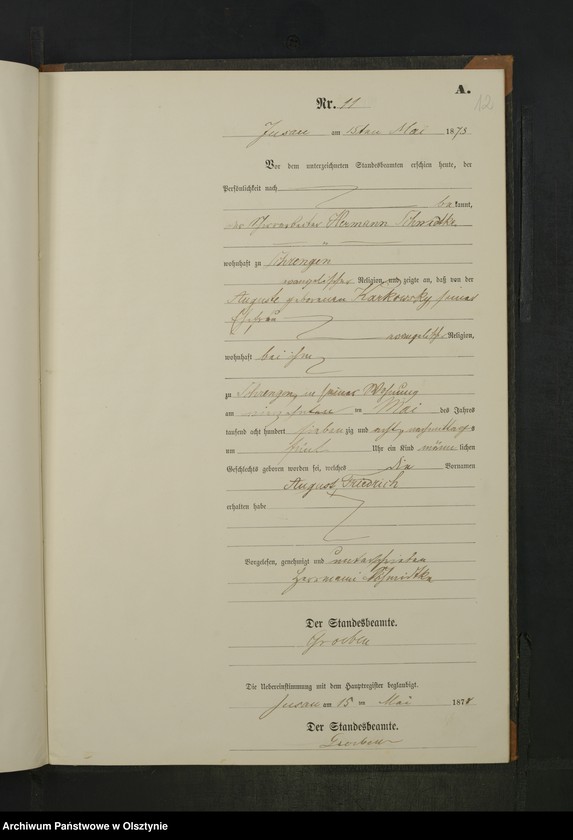 A.
12
Nr. 11
am 15ten Mai 1878
Vor dem unterzeichneten Standesbeamten erschien heute, der
Persönlichkeit nach
bekannt,
Hermann Schmidtke
wohnhaft zu
evangelischer Religion, und zeigte an, daß von der
Auguste geborenen Karkowsky, seiner
Ehefrau
evangelischer Religion,
wohnhaft bei ihm
zu in seiner Wohnung
am Mai des Jahres
tausend acht hundert siebenzig und acht, nachmittags
um fünf Uhr ein Kind männlichen
Geschlechts geboren worden sei, welches die Vornamen
August Friedrich
erhalten habe
Vorgelesen, genehmigt und unterschrieben
Herrmann Schmidtke
Der Standesbeamte.
Groeben
Die Uebereinstimmung mit dem Hauptregister beglaubigt.
am 15 ten Mai 1878
Der Standesbeamte.
Groeben
Archiwum Państwowe w Olsztynie